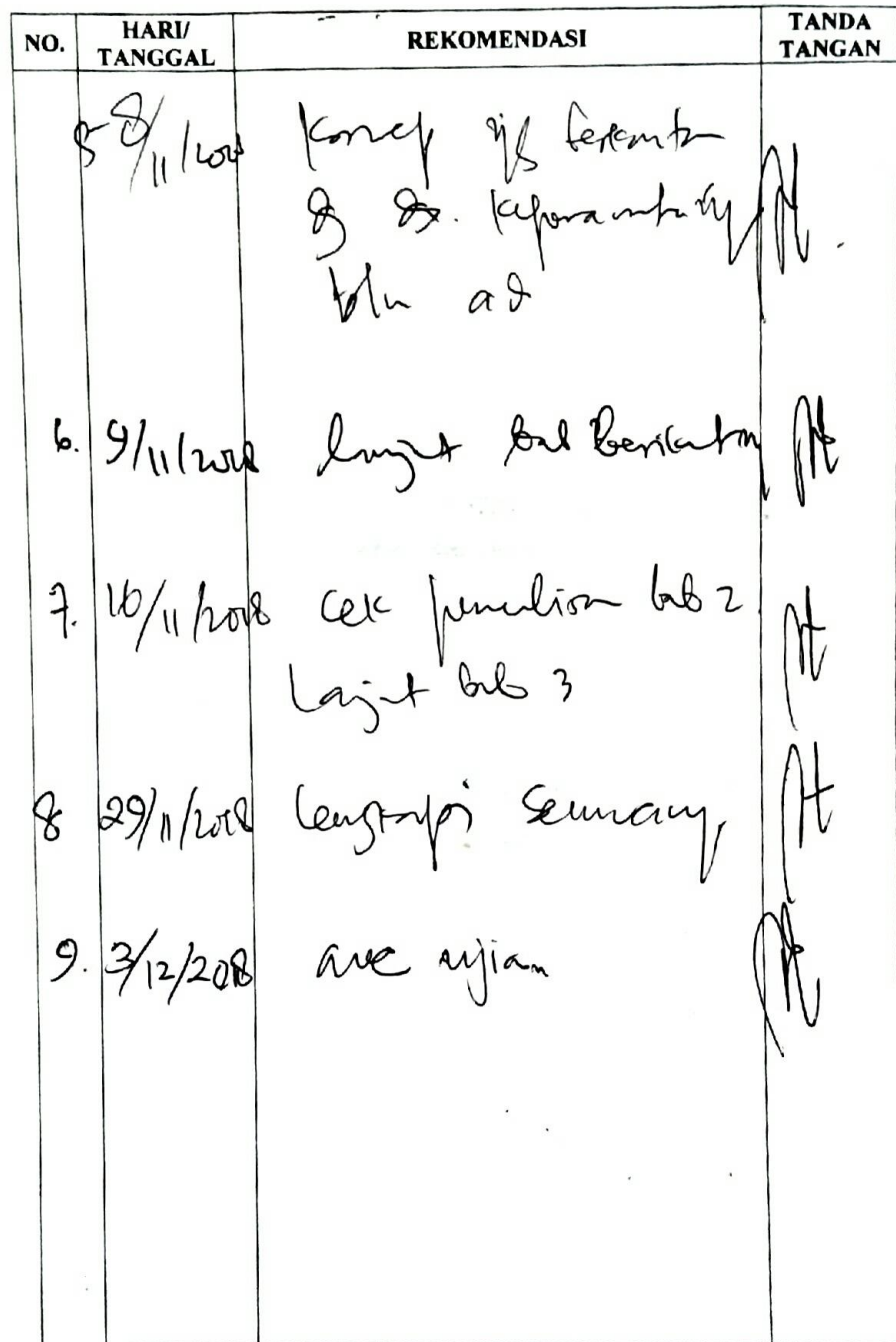 NO. HARI/ TANGGAL REKOMENDASI TANDA TANGAN
5 8/11/2018 Konsep yg berkaitan
dg dx. keperawatannya
blm ad
6. 9/11/2018 lanjut bab Berikutnya
7. 16/11/2018 cek penulisan bab 2
Lanjut bab 3
8 29/11/2018 lengkapi semuany
9. 3/12/2018 acc ujian